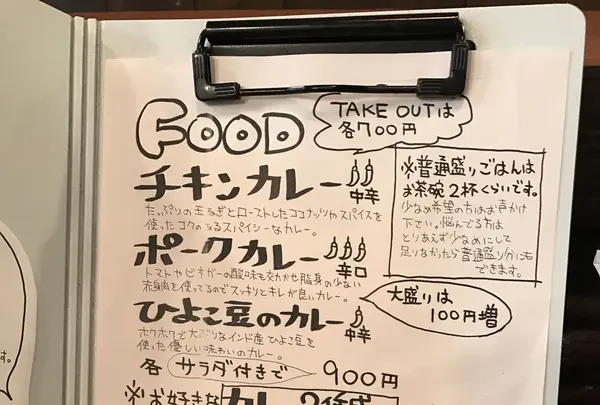 FOOD
TAKE OUTは
各700円
チキンカレー
中辛
たっぷりの玉ねぎとローストしたココナッツやスパイスを
使ったコクのあるスパイシーなカレー。
ポークカレー
辛口
トマトやビネガーの酸味も効かせ脂身の少ない
赤身肉を使ってるのでスッキリとキレが良いカレー。
ひよこ豆のカレー
中辛
ホクホクで大ぶりなインド産ひよこ豆を
使った優しい味わいのカレー。
各サラダ付きで 900円
※普通盛りごはんは
お茶碗2杯くらいです。
少なめ希望の方はお声かけ
下さい。悩んでる方は
とりあえず少なめにして
足りなかったら普通盛り分にも
できます。
大盛りは
100円増
※お好きなカレー2
す。